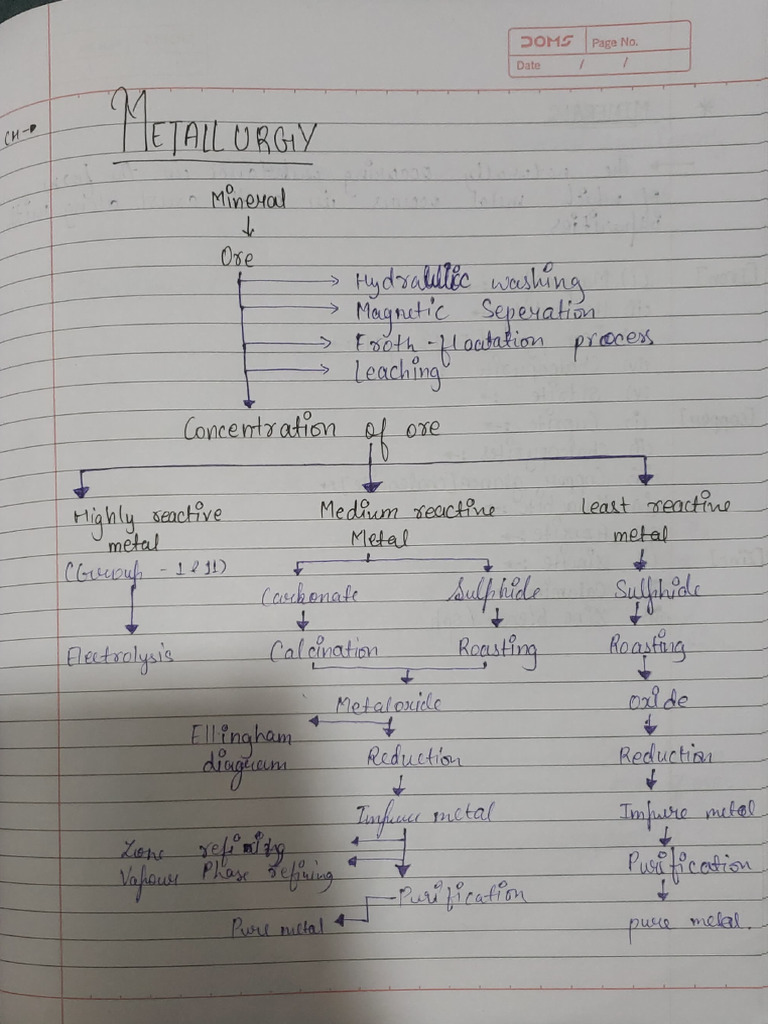 DOMS Page No.
Date / /
CH→
METALLURGY
Mineral
Ore
Hydraulic washing
Magnetic Seperation
Froth-floatation process
Leaching
Concentration of ore
Highly reactive metal
(Group - 1 & 11)
Electrolysis
Medium reactive Metal
Carbonate Sulphide
Calcination Roasting
Metaloxide
Ellingham diagram
Reduction
Impure metal
Zone refining
Vapour Phase refining
Purification
Pure metal
Least reactive metal
Sulphide
Roasting
Oxide
Reduction
Impure metal
Purification
pure metal.